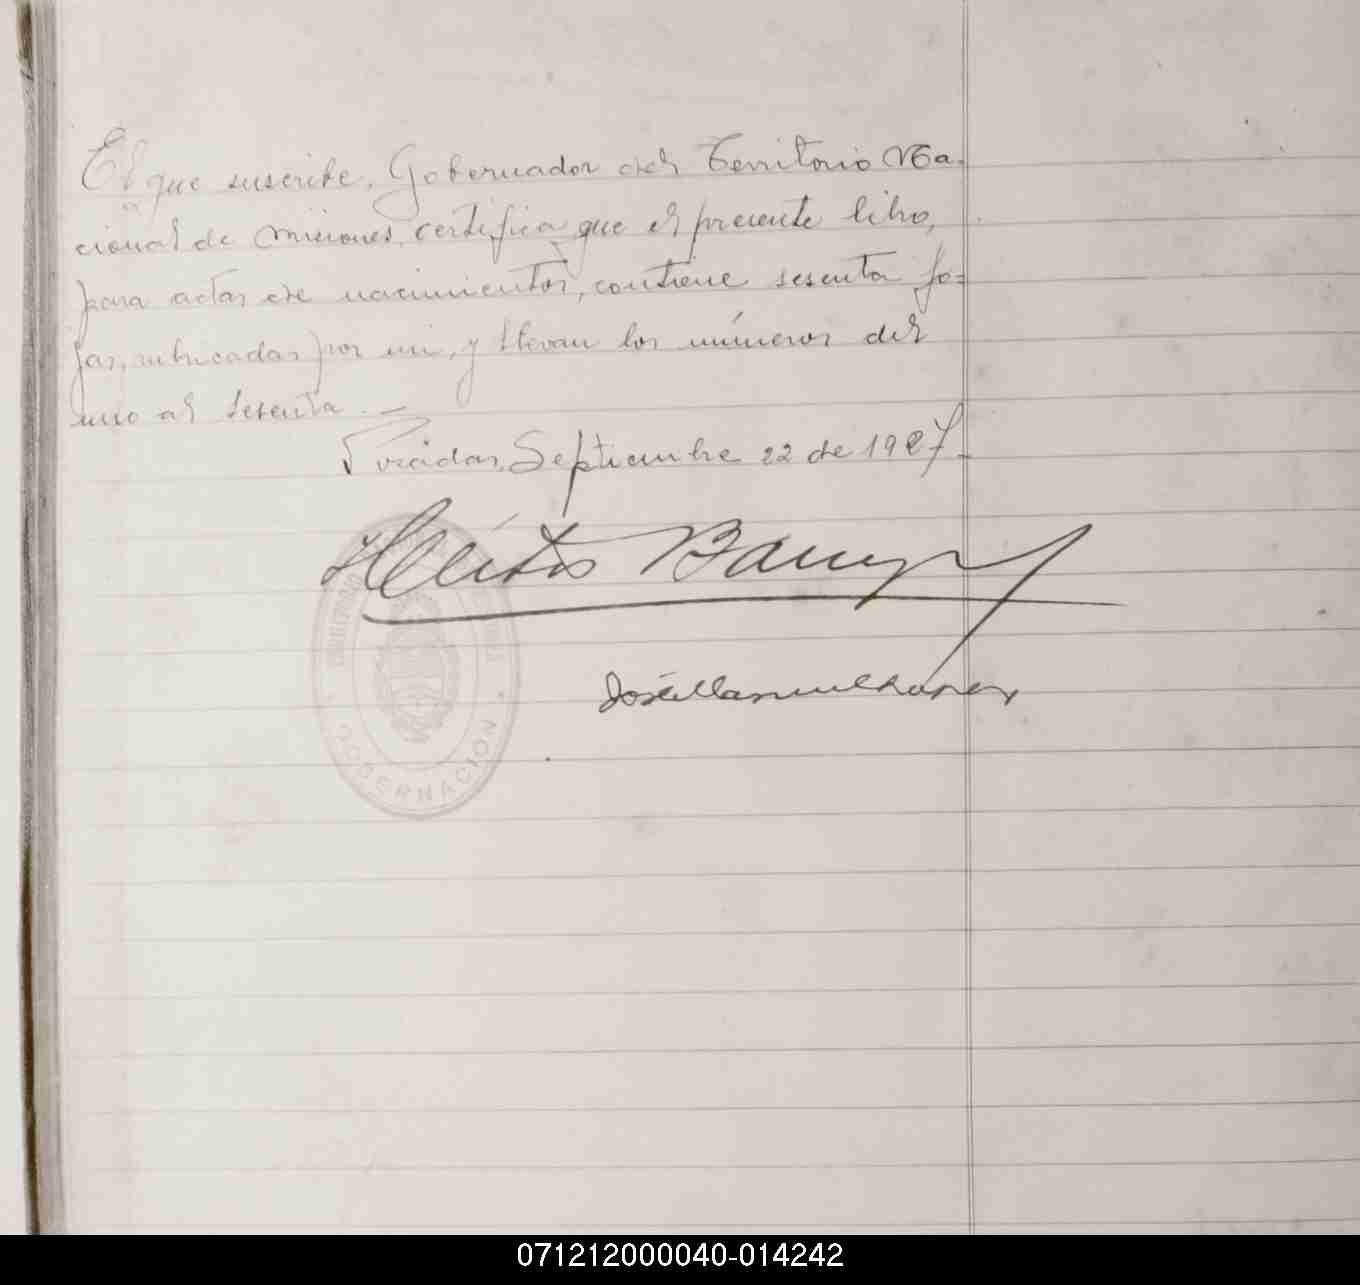 El que suscribe, Gobernador del Territorio Na-
cional de Misiones, certifica que el presente libro,
para actas de nacimientos, contiene sesenta fo-
jas, rubricadas por mi, y llevan los números del
uno al sesenta.—
Posadas, Septiembre 22 de 1927.
Héctor Barreyro
José Manuel
GOBERNACION
071212000040-014242